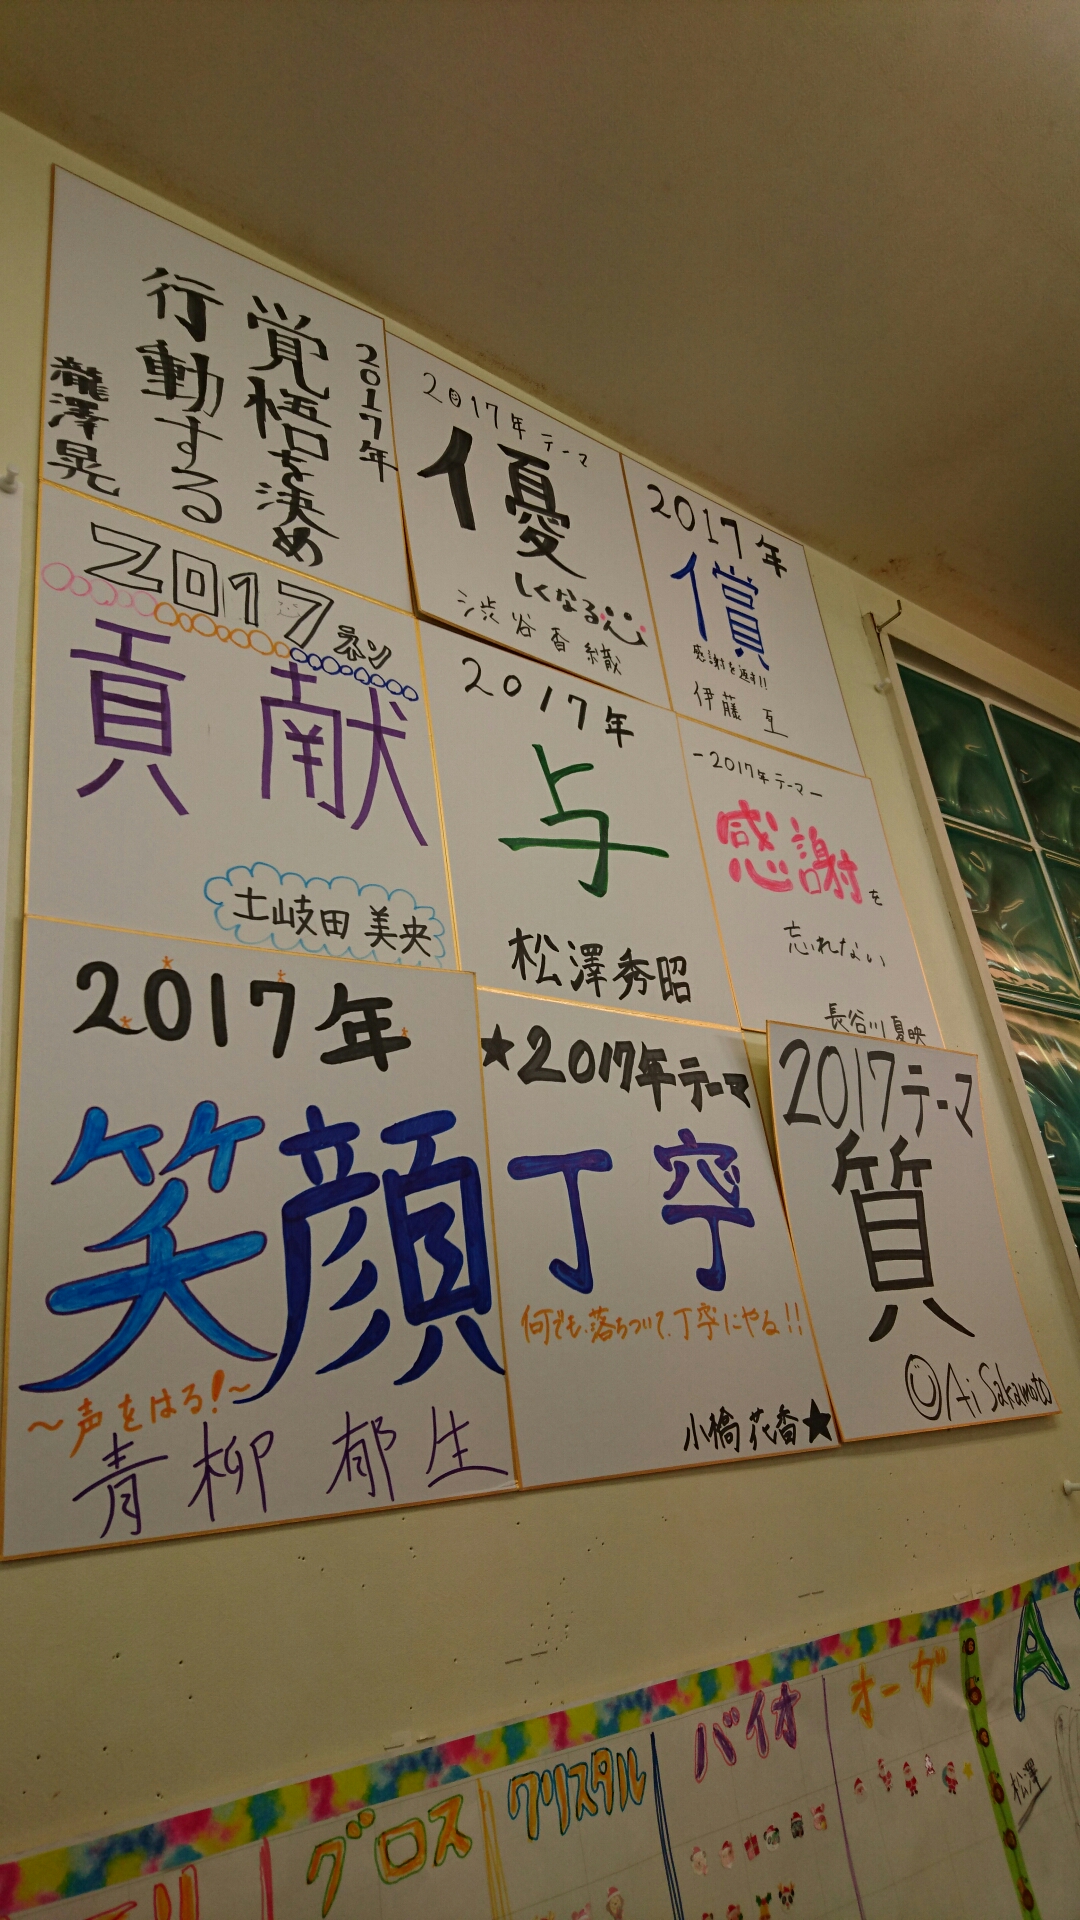 2017年
覚悟を決め
行動する
瀧澤晃
2017年 テーマ
優
しくなる
渋谷香織
2017年
償
感謝を返す!!
伊藤 亙
2017ネン
貢献
土岐田 美央
2017年
与
松澤秀昭
-2017年テーマ-
感謝を
忘れない
長谷川 夏映
2017年
笑顔
~声をはる!~
青柳 郁生
★2017年テーマ
丁寧
何でも落ちついて、丁寧にやる!!
小橋 花香★
2017テーマ
質
Ai Sakamoto
グロス
クリスタル
バイオ
オーガ
A
松澤